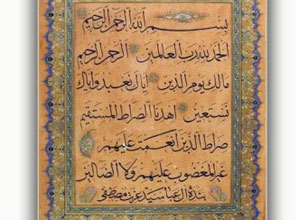 بسم الله الرحمن الرحيم
الحمد لله رب العالمين الرحمن الرحيم
مالك يوم الدين اياك نعبد واياك
نستعين اهدنا الصراط المستقيم
صراط الذين انعمت عليهم
غير المغضوب عليهم ولا الضالين
بنده آل عبا سيد عزت مصطفى